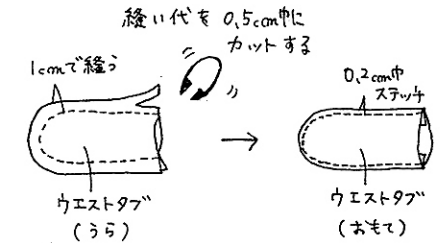 縫い代を0.5cm巾に
カットする
1cmで縫う
0.2cm巾
ステッチ
ウエストタブ
(うら)
ウエストタブ
(おもて)